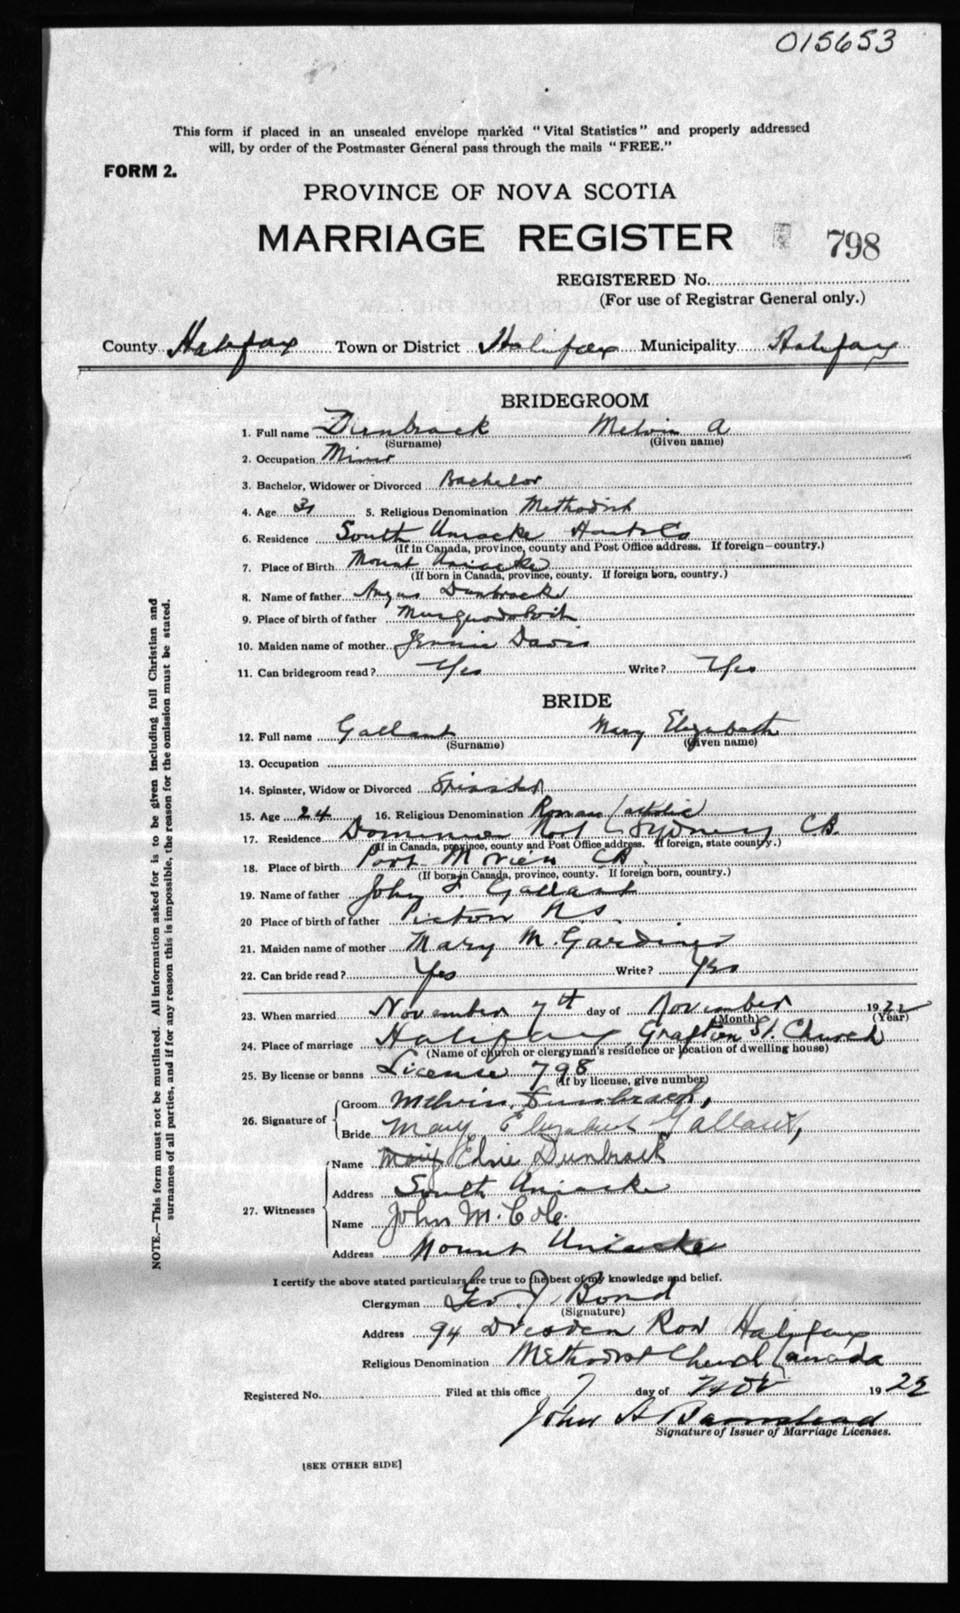 015653
This form if placed in an unsealed envelope marked "Vital Statistics" and properly addressed
will, by order of the Postmaster General pass through the mails "FREE."
FORM 2.
PROVINCE OF NOVA SCOTIA
MARRIAGE REGISTER 798
REGISTERED No.
(For use of Registrar General only.)
County Halifax Town or District Halifax Municipality Halifax
BRIDEGROOM
1. Full name Dunbrack Melvin A
(Surname) (Given name)
2. Occupation Miner
3. Bachelor, Widower or Divorced Bachelor
4. Age 31 5. Religious Denomination Methodist
6. Residence South Uniacke Hants Co
(If in Canada, province, county and Post Office address. If foreign—country.)
7. Place of Birth Mount Uniacke
(If born in Canada, province, county. If foreign born, country.)
8. Name of father Angus Dunbrack
9. Place of birth of father Musquodoboit
10. Maiden name of mother Jennie Davis
11. Can bridegroom read? Yes Write? Yes
BRIDE
12. Full name Gallant Mary Elizabeth
(Surname) (Given name)
13. Occupation
14. Spinster, Widow or Divorced Spinster
15. Age 24 16. Religious Denomination Roman Catholic
17. Residence Dominion No 1 Sydney CB.
(If in Canada, province, county and Post Office address. If foreign, state country.)
18. Place of birth Port Morien CB.
(If born in Canada, province, county. If foreign born, country.)
19. Name of father John Gallant
20 Place of birth of father Pictou NS.
21. Maiden name of mother Mary M. Gardiner
22. Can bride read? Yes Write? Yes
23. When married November 7th day of November 1922
(Month) (Year)
24. Place of marriage Halifax Grafton St. Church
(Name of church or clergyman's residence or location of dwelling house)
25. By license or banns License 798
(If by license, give number)
26. Signature of Groom Melvin Dunbrack,
Bride Mary Elizabeth Gallant,
27. Witnesses Name Mary Elsie Dunbrack
Address South Uniacke
Name John M. Cole.
Address Mount Uniacke
I certify the above stated particulars are true to the best of my knowledge and belief.
Clergyman Geo. J. Bond
(Signature)
Address 94 Dresden Row Halifax
Religious Denomination Methodist Church Canada
Registered No. Filed at this office 7 day of Nov 1922
John A Barnstead
Signature of Issuer of Marriage Licenses.
[SEE OTHER SIDE]
NOTE.—This form must not be mutilated. All information asked for is to be given including full Christian and
surnames of all parties, and if for any reason this is impossible, the reason for the omission must be stated.